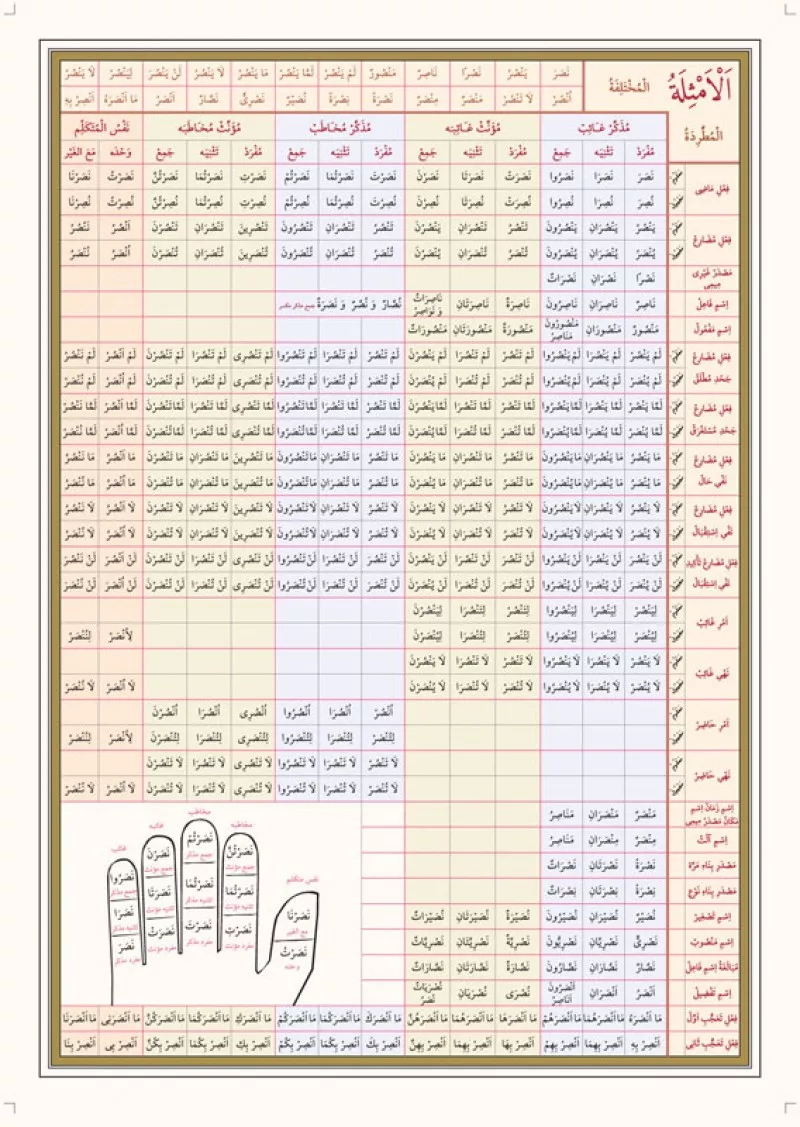 اَلْاَمْثِلَةُ الْمُخْتَلِفَةُ
نَصَرَ يَنْصُرُ نَصْرًا نَاصِرٌ مَنْصُورٌ لَمْ يَنْصُرْ لَمَّا يَنْصُرْ مَا يَنْصُرُ لَا يَنْصُرُ لَنْ يَنْصُرَ لِيَنْصُرْ لَا يَنْصُرْ
اُنْصُرْ لَا تَنْصُرْ مَنْصَرٌ مِنْصَرٌ نَصْرَةً نِصْرَةً نُصَيْرٌ نَصْرِىٌّ نَصَّارٌ اَنْصَرُ مَا اَنْصَرَهُ اَنْصِرْ بِهِ
الْمُطَّرِدَةُ
مُذَكَّرْ غَائِبْ مُؤَنَّثْ غَائِبَه مُذَكَّرْ مُخَاطَبْ مُؤَنَّثْ مُخَاطَبَه نَفْسُ الْمُتَكَلِّمْ
مُفْرَدْ تَثْنِيَه جَمِعْ مُفْرَدْ تَثْنِيَه جَمِعْ مُفْرَدْ تَثْنِيَه جَمِعْ مُفْرَدْ تَثْنِيَه جَمِعْ وَحْدَه مَعَ الْغَيْر
فِعْلِ مَاضِى
نَصَرَ نَصَرَا نَصَرُوا نَصَرَتْ نَصَرَتَا نَصَرْنَ نَصَرْتَ نَصَرْتُمَا نَصَرْتُمْ نَصَرْتِ نَصَرْتُمَا نَصَرْتُنَّ نَصَرْتُ نَصَرْنَا
نُصِرَ نُصِرَا نُصِرُوا نُصِرَتْ نُصِرَتَا نُصِرْنَ نُصِرْتَ نُصِرْتُمَا نُصِرْتُمْ نُصِرْتِ نُصِرْتُمَا نُصِرْتُنَّ نُصِرْتُ نُصِرْنَا
فِعْلِ مُضَارِعْ
يَنْصُرُ يَنْصُرَانِ يَنْصُرُونَ تَنْصُرُ تَنْصُرَانِ يَنْصُرْنَ تَنْصُرُ تَنْصُرَانِ تَنْصُرُونَ تَنْصُرِينَ تَنْصُرَانِ تَنْصُرْنَ اَنْصُرُ نَنْصُرُ
يُنْصَرُ يُنْصَرَانِ يُنْصَرُونَ تُنْصَرُ تُنْصَرَانِ يُنْصَرْنَ تُنْصَرُ تُنْصَرَانِ تُنْصَرُونَ تُنْصَرِينَ تُنْصَرَانِ تُنْصَرْنَ اُنْصَرُ نُنْصَرُ
مَصْدَرْ غَيْرِى مِيمِى نَصْرًا نَصْرَانِ نَصْرَاتٌ
اِسْمِ فَاعِلْ نَاصِرٌ نَاصِرَانِ نَاصِرُونَ نَاصِرَةٌ نَاصِرَتَانِ نَاصِرَاتٌ وَ نَوَاصِرُ نُصَّارٌ وَ نُصَّرٌ وَ نَصَرَةٌ جمع مذكر مكسر
اِسْمِ مَفْعُولْ مَنْصُورٌ مَنْصُورَانِ مَنْصُورُونَ مَنَاصِرُ مَنْصُورَةٌ مَنْصُورَتَانِ مَنْصُورَاتٌ
فِعْلِ مُضَارِعْ جَحْدِ مُطْلَقْ
لَمْ يَنْصُرْ لَمْ يَنْصُرَا لَمْ يَنْصُرُوا لَمْ تَنْصُرْ لَمْ تَنْصُرَا لَمْ يَنْصُرْنَ لَمْ تَنْصُرْ لَمْ تَنْصُرَا لَمْ تَنْصُرُوا لَمْ تَنْصُرِى لَمْ تَنْصُرَا لَمْ تَنْصُرْنَ لَمْ اَنْصُرْ لَمْ نَنْصُرْ
لَمْ يُنْصَرْ لَمْ يُنْصَرَا لَمْ يُنْصَرُوا لَمْ تُنْصَرْ لَمْ تُنْصَرَا لَمْ يُنْصَرْنَ لَمْ تُنْصَرْ لَمْ تُنْصَرَا لَمْ تُنْصَرُوا لَمْ تُنْصَرِى لَمْ تُنْصَرَا لَمْ تُنْصَرْنَ لَمْ اُنْصَرْ لَمْ نُنْصَرْ
فِعْلِ مُضَارِعْ جَحْدِ مُسْتَغْرَقْ
لَمَّا يَنْصُرْ لَمَّا يَنْصُرَا لَمَّا يَنْصُرُوا لَمَّا تَنْصُرْ لَمَّا تَنْصُرَا لَمَّا يَنْصُرْنَ لَمَّا تَنْصُرْ لَمَّا تَنْصُرَا لَمَّا تَنْصُرُوا لَمَّا تَنْصُرِى لَمَّا تَنْصُرَا لَمَّا تَنْصُرْنَ لَمَّا اَنْصُرْ لَمَّا نَنْصُرْ
لَمَّا يُنْصَرْ لَمَّا يُنْصَرَا لَمَّا يُنْصَرُوا لَمَّا تُنْصَرْ لَمَّا تُنْصَرَا لَمَّا يُنْصَرْنَ لَمَّا تُنْصَرْ لَمَّا تُنْصَرَا لَمَّا تُنْصَرُوا لَمَّا تُنْصَرِى لَمَّا تُنْصَرَا لَمَّا تُنْصَرْنَ لَمَّا اُنْصَرْ لَمَّا نُنْصَرْ
فِعْلِ مُضَارِعْ نَفْىِ حَالْ
مَا يَنْصُرُ مَا يَنْصُرَانِ مَا يَنْصُرُونَ مَا تَنْصُرُ مَا تَنْصُرَانِ مَا يَنْصُرْنَ مَا تَنْصُرُ مَا تَنْصُرَانِ مَا تَنْصُرُونَ مَا تَنْصُرِينَ مَا تَنْصُرَانِ مَا تَنْصُرْنَ مَا اَنْصُرُ مَا نَنْصُرُ
مَا يُنْصَرُ مَا يُنْصَرَانِ مَا يُنْصَرُونَ مَا تُنْصَرُ مَا تُنْصَرَانِ مَا يُنْصَرْنَ مَا تُنْصَرُ مَا تُنْصَرَانِ مَا تُنْصَرُونَ مَا تُنْصَرِينَ مَا تُنْصَرَانِ مَا تُنْصَرْنَ مَا اُنْصَرُ مَا نُنْصَرُ
فِعْلِ مُضَارِعْ نَفْىِ اِسْتِقْبَالْ
لَا يَنْصُرُ لَا يَنْصُرَانِ لَا يَنْصُرُونَ لَا تَنْصُرُ لَا تَنْصُرَانِ لَا يَنْصُرْنَ لَا تَنْصُرُ لَا تَنْصُرَانِ لَا تَنْصُرُونَ لَا تَنْصُرِينَ لَا تَنْصُرَانِ لَا تَنْصُرْنَ لَا اَنْصُرُ لَا نَنْصُرُ
لَا يُنْصَرُ لَا يُنْصَرَانِ لَا يُنْصَرُونَ لَا تُنْصَرُ لَا تُنْصَرَانِ لَا يُنْصَرْنَ لَا تُنْصَرُ لَا تُنْصَرَانِ لَا تُنْصَرُونَ لَا تُنْصَرِينَ لَا تُنْصَرَانِ لَا تُنْصَرْنَ لَا اُنْصَرُ لَا نُنْصَرُ
فِعْلِ مُضَارِعْ تَأْكِيدِ نَفْىِ اِسْتِقْبَالْ
لَنْ يَنْصُرَ لَنْ يَنْصُرَا لَنْ يَنْصُرُوا لَنْ تَنْصُرَ لَنْ تَنْصُرَا لَنْ يَنْصُرْنَ لَنْ تَنْصُرَ لَنْ تَنْصُرَا لَنْ تَنْصُرُوا لَنْ تَنْصُرِى لَنْ تَنْصُرَا لَنْ تَنْصُرْنَ لَنْ اَنْصُرَ لَنْ نَنْصُرَ
لَنْ يُنْصَرَ لَنْ يُنْصَرَا لَنْ يُنْصَرُوا لَنْ تُنْصَرَ لَنْ تُنْصَرَا لَنْ يُنْصَرْنَ لَنْ تُنْصَرَ لَنْ تُنْصَرَا لَنْ تُنْصَرُوا لَنْ تُنْصَرِى لَنْ تُنْصَرَا لَنْ تُنْصَرْنَ لَنْ اُنْصَرَ لَنْ نُنْصَرَ
اَمْرِ غَائِبْ
لِيَنْصُرْ لِيَنْصُرَا لِيَنْصُرُوا لِتَنْصُرْ لِتَنْصُرَا لِيَنْصُرْنَ
لِيُنْصَرْ لِيُنْصَرَا لِيُنْصَرُوا لِتُنْصَرْ لِتُنْصَرَا لِيُنْصَرْنَ لِاُنْصَرْ لِنُنْصَرْ
نَهْىِ غَائِبْ
لَا يَنْصُرْ لَا يَنْصُرَا لَا يَنْصُرُوا لَا تَنْصُرْ لَا تَنْصُرَا لَا يَنْصُرْنَ
لَا يُنْصَرْ لَا يُنْصَرَا لَا يُنْصَرُوا لَا تُنْصَرْ لَا تُنْصَرَا لَا يُنْصَرْنَ لَا اُنْصَرْ لَا نُنْصَرْ
اَمْرِ حَاضِرْ
اُنْصُرْ اُنْصُرَا اُنْصُرُوا اُنْصُرِى اُنْصُرَا اُنْصُرْنَ
لِتُنْصَرْ لِتُنْصَرَا لِتُنْصَرُوا لِتُنْصَرِى لِتُنْصَرَا لِتُنْصَرْنَ لِاُنْصَرْ لِنُنْصَرْ
نَهْىِ حَاضِرْ
لَا تَنْصُرْ لَا تَنْصُرَا لَا تَنْصُرُوا لَا تَنْصُرِى لَا تَنْصُرَا لَا تَنْصُرْنَ
لَا تُنْصَرْ لَا تُنْصَرَا لَا تُنْصَرُوا لَا تُنْصَرِى لَا تُنْصَرَا لَا تُنْصَرْنَ لَا اُنْصَرْ لَا نُنْصَرْ
اِسْمِ زَمَانْ اِسْمِ مَكَانْ مَصْدَرْ مِيمِى مَنْصَرٌ مَنْصَرَانِ مَنَاصِرُ
اِسْمِ آلَتْ مِنْصَرٌ مِنْصَرَانِ مَنَاصِرُ
مَصْدَرْ بِنَاءِ مَرَّه نَصْرَةً نَصْرَتَانِ نَصْرَاتٌ
مَصْدَرْ بِنَاءِ نَوْعْ نِصْرَةً نِصْرَتَانِ نِصْرَاتٌ
اِسْمِ تَصْغِيرْ نُصَيْرٌ نُصَيْرَانِ نُصَيْرُونَ نُصَيْرَةٌ نُصَيْرَتَانِ نُصَيْرَاتٌ
اِسْمِ مَنْسُوبْ نَصْرِىٌّ نَصْرِيَّانِ نَصْرِيُّونَ نَصْرِيَّةٌ نَصْرِيَّتَانِ نَصْرِيَّاتٌ
مُبَالَغَهٔ اِسْمِ فَاعِلْ نَصَّارٌ نَصَّارَانِ نَصَّارُونَ نَصَّارَةٌ نَصَّارَتَانِ نَصَّارَاتٌ
اِسْمِ تَفْضِيلْ اَنْصَرُ اَنْصَرَانِ اَنْصَرُونَ اَنَاصِرُ نُصْرَى نُصْرَيَانِ نُصْرَيَاتٌ نُصَرٌ
فِعْلِ تَعَجُّبِ اَوَّلْ مَا اَنْصَرَهُ مَا اَنْصَرَهُمَا مَا اَنْصَرَهُمْ مَا اَنْصَرَهَا مَا اَنْصَرَهُمَا مَا اَنْصَرَهُنَّ مَا اَنْصَرَكَ مَا اَنْصَرَكُمَا مَا اَنْصَرَكُمْ مَا اَنْصَرَكِ مَا اَنْصَرَكُمَا مَا اَنْصَرَكُنَّ مَا اَنْصَرَنِى مَا اَنْصَرَنَا
فِعْلِ تَعَجُّبِ ثَانِى اَنْصِرْ بِهِ اَنْصِرْ بِهِمَا اَنْصِرْ بِهِمْ اَنْصِرْ بِهَا اَنْصِرْ بِهِمَا اَنْصِرْ بِهِنَّ اَنْصِرْ بِكَ اَنْصِرْ بِكُمَا اَنْصِرْ بِكُمْ اَنْصِرْ بِكِ اَنْصِرْ بِكُمَا اَنْصِرْ بِكُنَّ اَنْصِرْ بِى اَنْصِرْ بِنَا
نفس متكلم
نَصَرْنَا
مع الغير
نَصَرْتُ
وحده
مخاطبه
نَصَرْتُنَّ
جمع مؤنث
نَصَرْتُمَا
تثنيه مؤنث
نَصَرْتِ
مفرد مؤنث
مخاطب
نَصَرْتُمْ
جمع مذكر
نَصَرْتُمَا
تثنيه مذكر
نَصَرْتَ
مفرد مذكر
غائبه
نَصَرْنَ
جمع مؤنث
نَصَرَتَا
تثنيه مؤنث
نَصَرَتْ
مفرد مؤنث
غائب
نَصَرُوا
جمع مذكر
نَصَرَا
تثنيه مذكر
نَصَرَ
مفرد مذكر